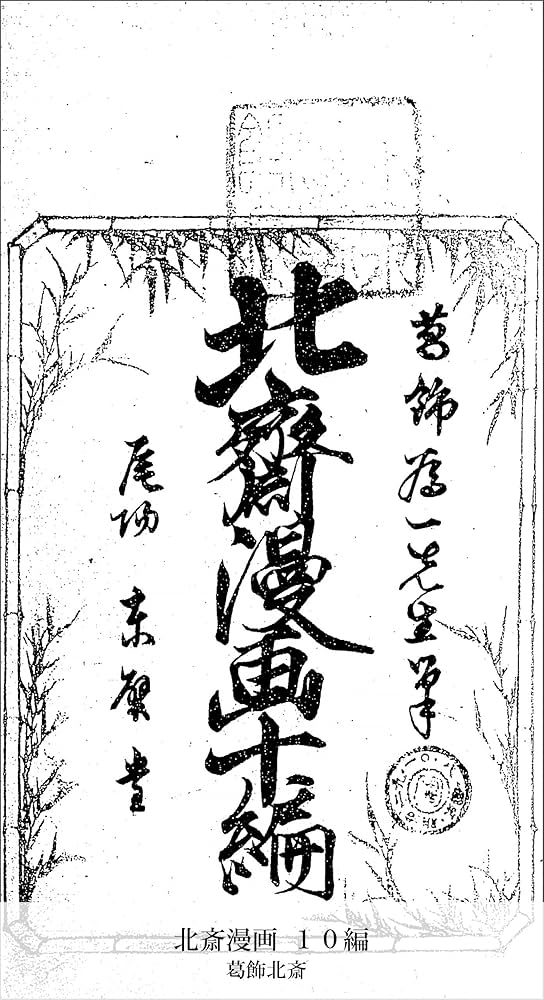 葛飾為一先生筆
北齋漫画十編
尾陽 東壁堂
北斎漫画 10編
葛飾北斎